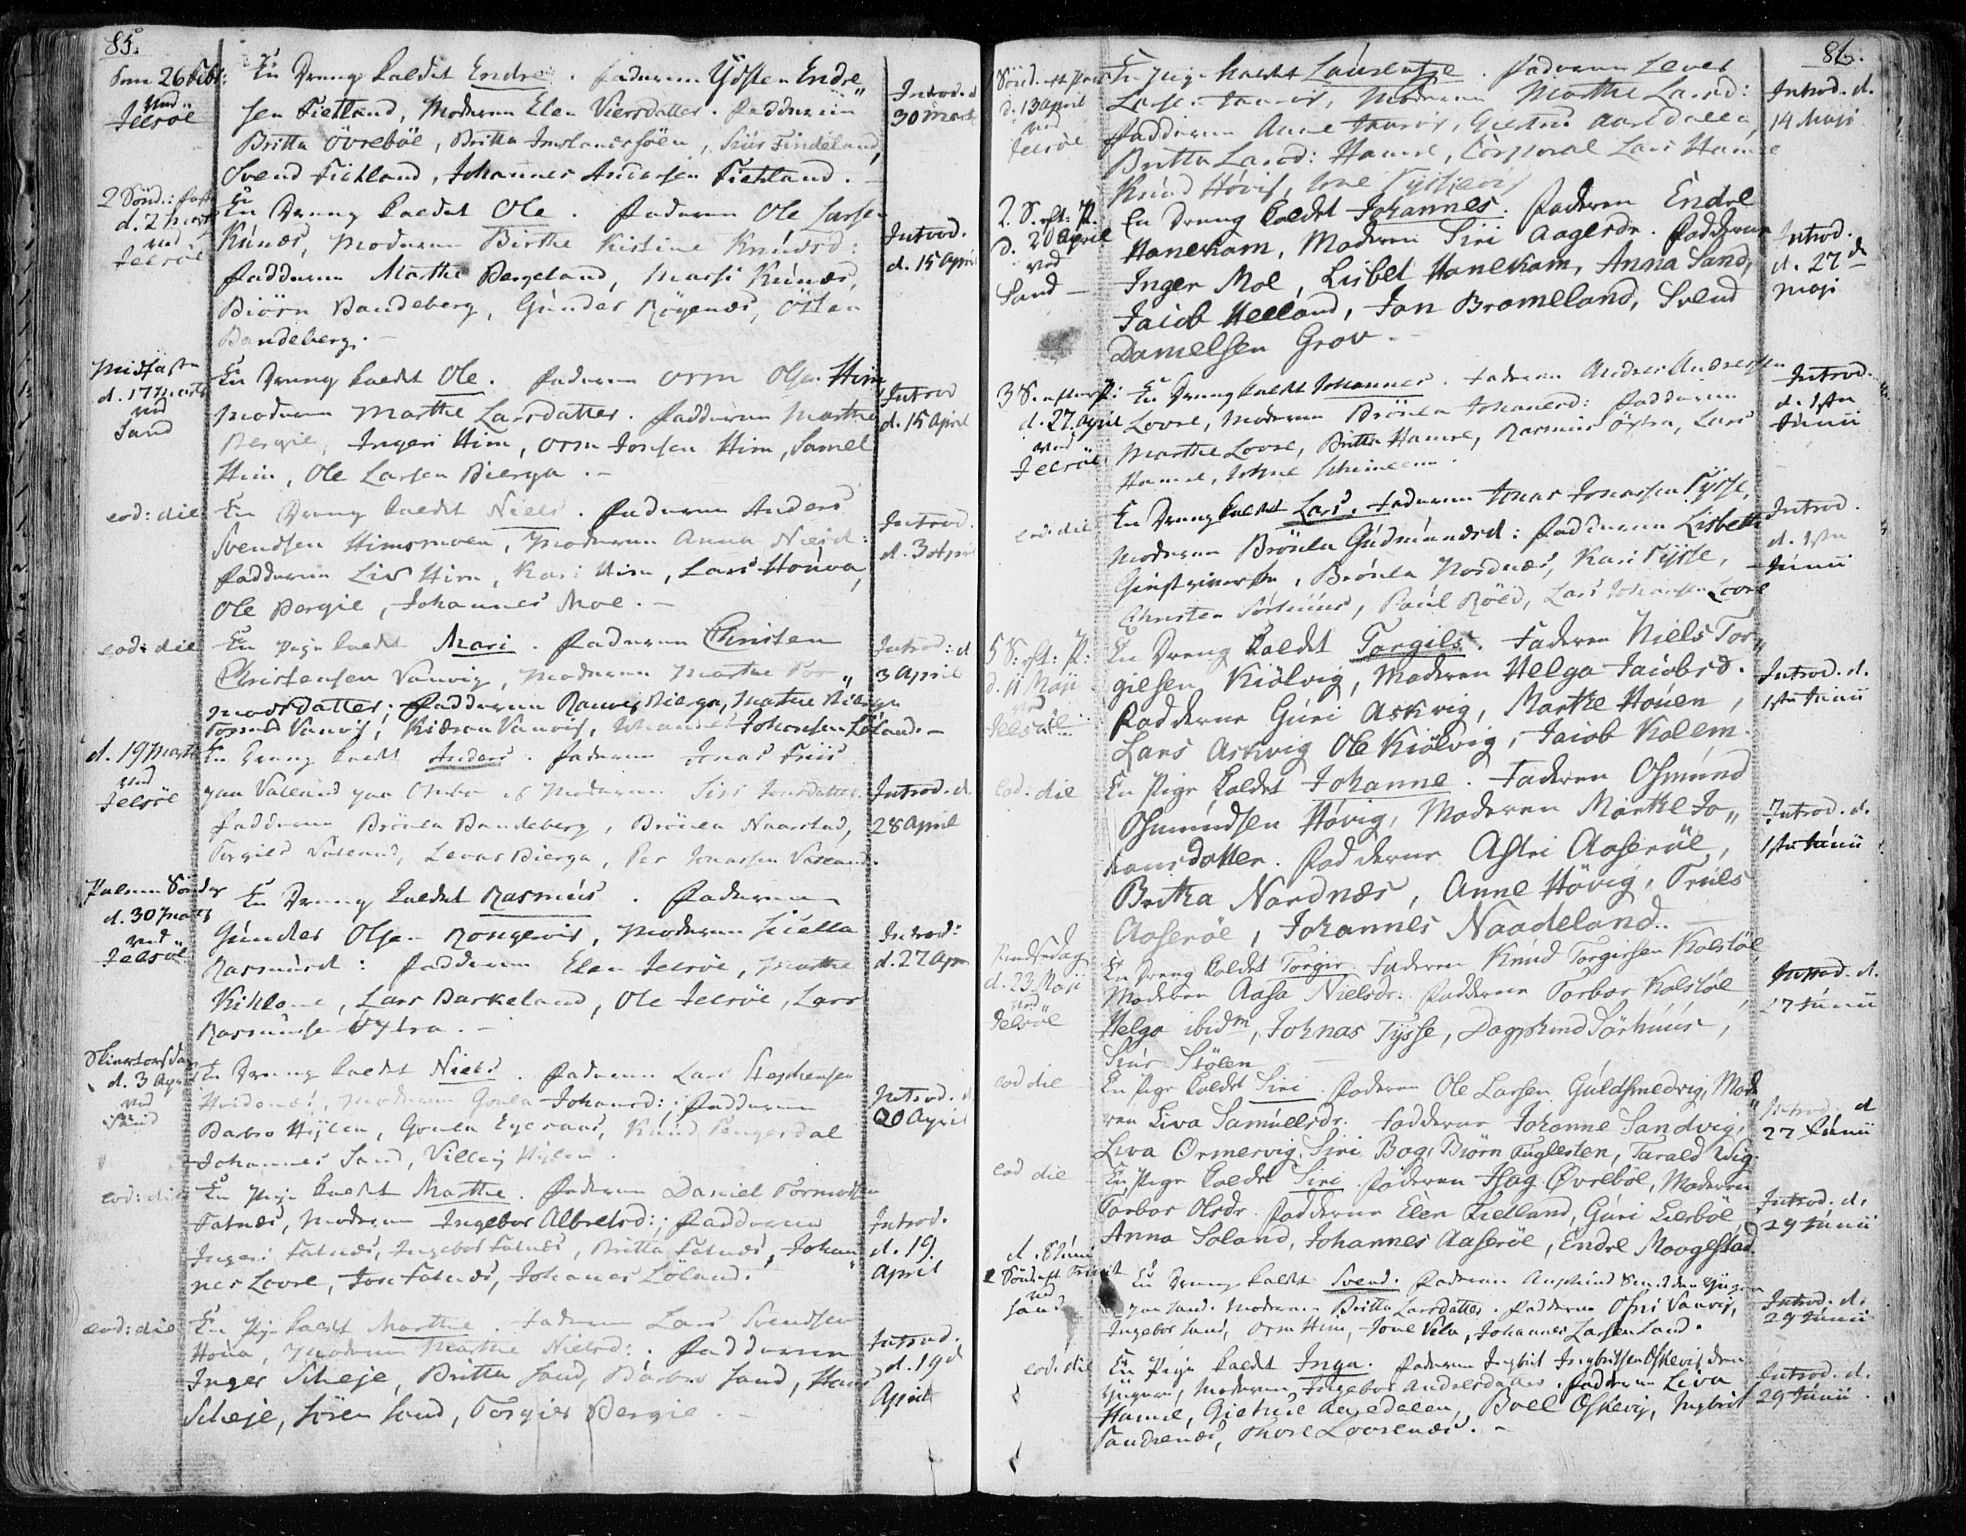 85.
Dom 26 Febr:
ved
Jelsöe
En Dreng kaldet Endre. Faderen Ydsten Endre„
sen Fietland, Moderen Elen Viersdatter. Fadderne
Britta Övreböe, Britta, Siur Findeland,
Svend Fietland, Johannes Andersen Fietland. –
Introd. d
30 Marti
2 Sönd: Faste
d. 2 Marti
ved
Jelsöe
En Dreng kaldet Ole. Faderen Ole Larsen
Kúnæs, Moderen Birthe Kirstine Knudsd:
Fadderne Marthe Bergeland, Marsi Kúnæs,
Biörn Bandeberg, Gunder Röyenæs, Östen
Bandeberg. –
Introd.
d. 15 April
Midfaste
d. 17 Marti
ved
Sand
En Dreng kaldet Ole. Faderen Orm Olsen Him
Moderen Marthe Larsdatter. Fadderne Marthe
Bergie, Ingeri Him, Orm Jonsen Him, Samel
Him, Ole Larsen Bierga. –
Introd
d. 15 April
eod: die
En Dreng kaldet Niels. Faderen Anders
Svendsen Himsmoen, Moderen Anna Nielsd:
Fadderne Liv Him, Kari Him, Lars Houva,
Ole Bergie, Johannes Moe. –
Introd.
d. 3 April
eod: die
En Pige kaldet Mari. Faderen Christen
Christensen Vanvig, Moderen Marthe Tor„
moesdatter; Fadderne Bierga, Marthe Bierga
Tormod Vanvig, Vanvig, Johansen Löland. –
Introd: d
3 April
d. 19 Marti
ved
Jelsöe
En Dreng kaldt Anders. Faderen Jonas Friis
paa Vatland paa Ombo og Moderen Siri Jonsdatter.
Fadderne Brönla Bandeberg, Brönla Naarstad,
Torgild Vatland, Levar Bierga, Per Jonassen Vatland.
Introd. d
28 April
Palme Söndag
d. 30 Marti
ved
Jelsöe
En Dreng kaldet Rasmús. Faderen
Gúnder Olsen Rongevig, Moderen Siella
Rasmusd: Fadderne Elen Jelsöe, Marthe
Kiklane, Lars Barkeland, Ole Jelsöe, Lars
Rasmúsen Yttra. –
Introd:
d. 27 April
Skiertorsdag
d. 3 April
ved
Sand
En Dreng kaldet Niels. Faderen Lars Stephensen
Hvidenæs, Moderen Gonla Johansd:; Fadderne
Barbro Hiylen, Gonla Egeraas, Knud Tengesdal
Johannes Sand, Villeig Hiylen.
Introd. d
20 April
eod: die
En Pige kaldet Marthe. Faderen Daniel Tormodsen
Fatnæs, Moderen Ingebor Albretsd:; Fadderne
Ingeri Fatnæs, Ingebor Fatnæs, Britta Fatnæs, Johan„
nes Lovre, Fatnæs, Johannes Löland.
Introd.
d. 19
April
eod: die
En Pige kaldet Marthe. Faderen Lars Svendsen
Houa, Moderen Marthe Nielsd:. Fadderne
Inger Scheje, Britta Sand, Barbro Sand, Hans
Scheje, Sören Sand, Torgier Bergie. –
Introd.
d. 19d
April
86.
Sönd. eft Paas
d. 13 April
ved
Jelsöe
En Pige kaldet Laurentze. Faderen Levet
Larsen, Moderen Marthe Larsd:
Fadderne Anne,
Britta Larsd: Hamre, Corporal Lars Hamre
Knúd Hövig,
Introd. d.
14 Maji
2. S. eft: P.
d. 20 April
ved
Sand –
En Dreng kaldet Johannes. Faderen Endre
Hanekam, Moderen Siri Aagesdr. Fadderne
Inger Moe, Lisbet Hanekam, Anna Sand,
Jacob Helland, Jan Brommeland, Svend
Danielsen Grov. –
Introd.
d. 27de
Maji
3 S. efter P:
d. 27 April
ved
Jelsöe
En Dreng kaldet Johannes. Faderen Andres Andersen
Lovre, Moderen Brönla Johansd: Fadderne
Marthe Lovre, Britta Hamre, Rasmus Östra, Lars
Hamre,
Introd.
d. 1ste
Junii
eod: die
En Dreng kaldet Lars. Faderen Jonas Jonassen Tysse,
Moderen Brönla Gúdmúndsd: Fadderne Lisbeth
, Brönla Nordnæs, Kari Tysse,
Christen Sörhuus, Paul Röed, Lars Johansen Lovre
Introd.
d. 1ste
Junii
5 S: eft: P:
d. 11 Maji
ved
Jelsöe
En Dreng kaldet Torgils. Faderen Niels Tor„
gielsen Kiölvig, Moderen Helga Jacobsd.
Fadderne Gúri Askvig, Marthe Houen,
Lars Askvig, Ole Kiölvig, Jacob Kolem.
Introd. d.
1ste Junii
eod: die
En Pige kaldet Johanne. Faderen Osmúnd
Osmúndsen Hövig, Moderen Marthe Jo„
hansdatter. Fadderne Astri Aaseröe,
Britha Nordnæs, Anne Hövig, Truls
Aaseröe, Johannes Naadeland. –
Introd. d.
1ste Junii
Pindsedag
d. 23 Maji
ved
Jelsöe
En Dreng kaldet Torger. Faderen Knúd Torgersen Kolsföe
Moderen Aasa Nielsdr. Fadderne Torbor Kolsföe,
Helga ibidm, Johnas Tysse, Dagfind Sörhúús,
Siúr Stölen
Introd. d.
27 Junii
eod die
En Pige kaldet Siri. Faderen Ole Larsen Guldsmedvig, Mode
ren Liva Samuelsdr. Fadderne Johanne Sandvig,
Liva Ormervig, Siri Bog, Biörn Fuglesten, Tarald Vig.
Introd. d
27 Junii
eod die
En Pige kaldet Siri. Faderen Isag Övreböe, Moderen
Torbor Olsdr. Fadderne Elen Fietland, Gúri Eiesböe,
Anna Soland, Johannes Aaserøe, Endre Moogestad
Introd. d.
29 Junii
d. 8 Juni
2 Sönd eft Trinit
ved
Sand
En Dreng kaldet Svend. Faderen Amskind Svendsen Yngre
paa Sand. Moderen Britta Larsdatter. Fadderne Vanvig,
Ingebor Sand, Orm Him, Jone Vela, Johannes Larsen Sand.
Introd. d.
29 Junii
eod: die
En Pige kaldet Inga. Faderen Ingbrit Ingbritsen Öskevig den
Yngere, Moderen Ingebor Andersdatter. Fadderne Liva
Hamre, Giertrud Aagedalen, Boel Öskevig, Ingbrit
Sandsenæs, Thore Loosenæs. –
Introd. d.
29 Junii